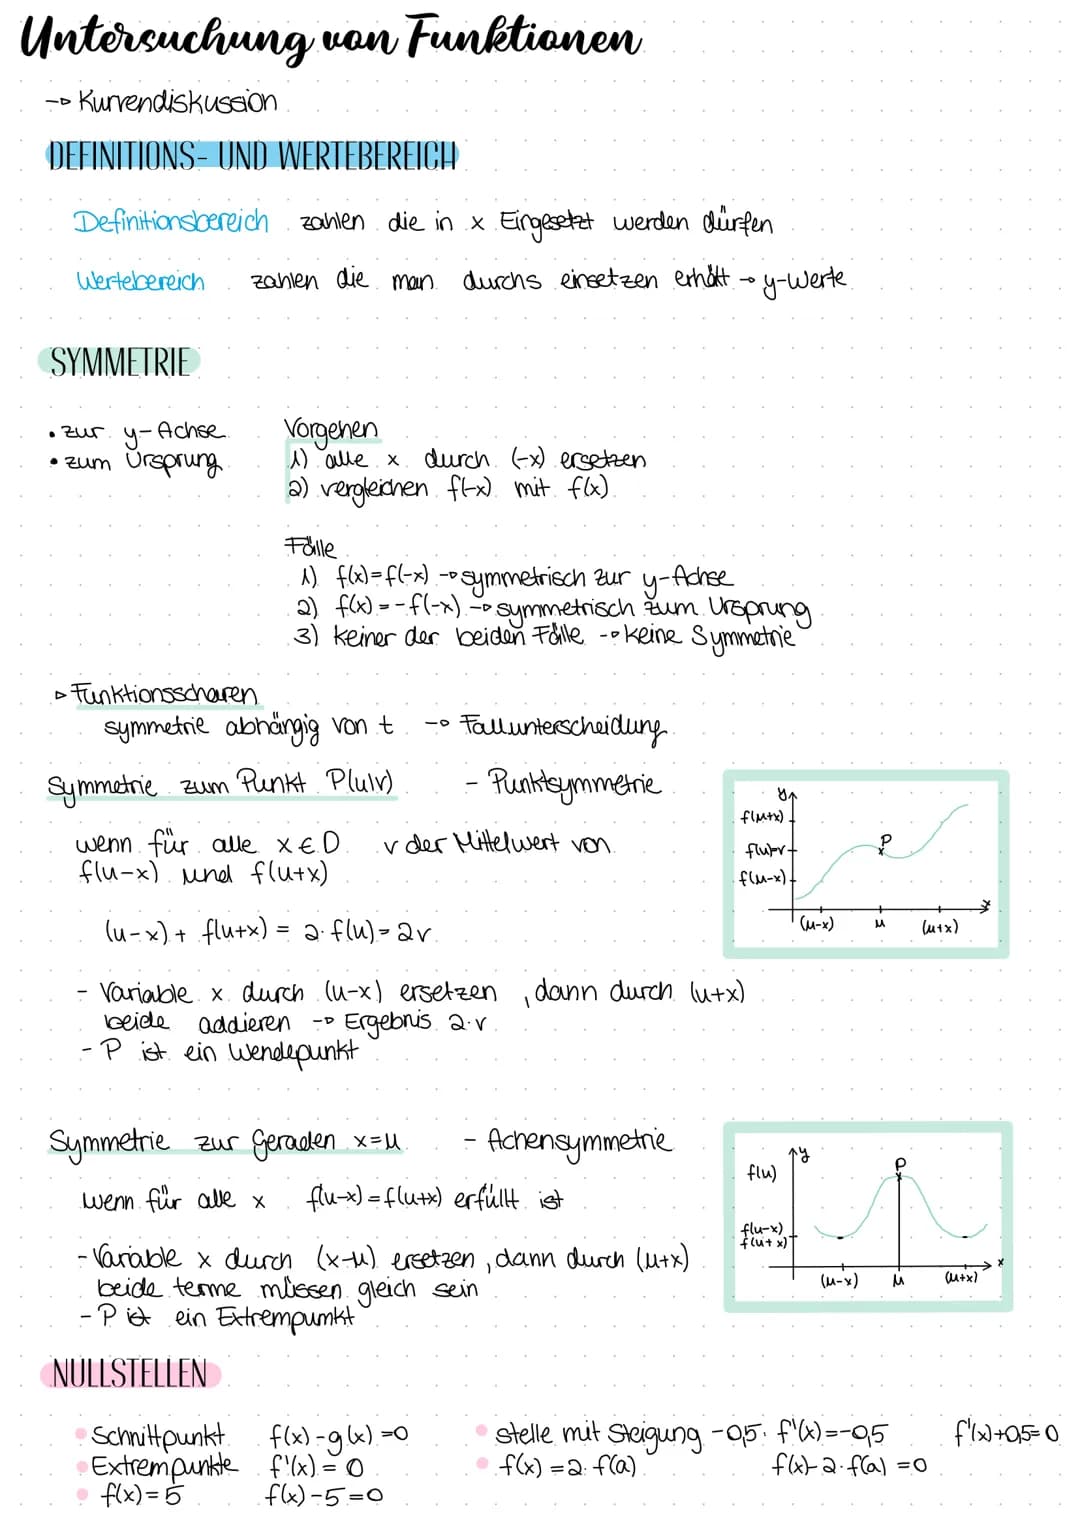 Untersuchung von Funktionen
→ Kurvendiskussion
DEFINITIONS- UND WERTEBEREICH
Definitionsbereich zahlen die in x Eingesetzt werden dürfen
Wertebereich zahlen die man durchs einsetzen erhält → y-Werte
SYMMETRIE
• zur y-Achse
• zum Ursprung
Vorgehen
1) alle x durch (-x) ersetzen
2) vergleichen f(-x) mit f(x)
Fälle
1) f(x)=f(-x) → symmetrisch zur y-Achse
2) f(x)=-f(-x) → symmetrisch zum Ursprung
3) keiner der beiden Fälle → keine Symmetrie
▹ Funktionsscharen
symmetrie abhängig von t → Fallunterscheidung
Symmetrie zum Punkt P(u|v) - Punktsymmetrie
wenn für alle x ∈ D v der Mittelwert von
f(u-x) und f(u+x)
(u-x) + f(u+x) = 2·f(u) = 2v
- Variable x durch (u-x) ersetzen, dann durch (u+x)
beide addieren → Ergebnis 2·v
- P ist ein Wendepunkt
y
f(u+x)
f(u)=v
f(u-x)
P
x
(u-x) u (u+x)
Symmetrie zur Geraden x=u - Achensymmetrie
wenn für alle x f(u-x)=f(u+x) erfüllt ist
- Variable x durch (x-u) ersetzen, dann durch (u+x)
beide terme müssen gleich sein
- P ist ein Extrempumkt
y
f(u)
P
f(u-x)
f(u+x)
x
(u-x) u (u+x)
NULLSTELLEN
• Schnittpunkt f(x)-g(x)=0
• Extrempunkte f'(x)=0
• f(x)=5 f(x)-5=0
• stelle mit Steigung -0,5. f'(x)=-0,5 f'(x)+0,5=0
• f(x)=2·f(a) f(x)-2·f(a)=0